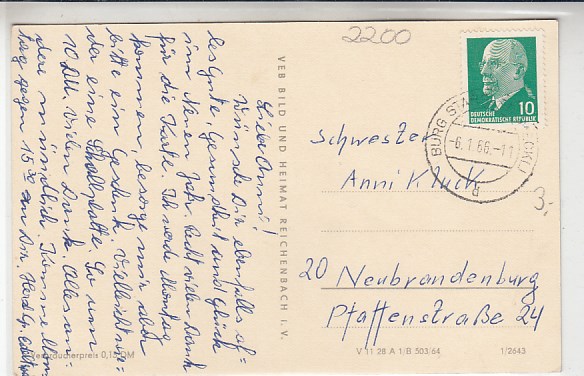 2200
Liebe Anni!
Wünsche Dir ebenfalls al=
les Gute, Gesundheit und Glück
im Neuen Jahr. Recht vielen Dank
für die Karte. Ich werde Montag
kommen, besorge mir aber
bitte ein Geschenk. Vielleicht wie=
der eine Schallplatte. So um
10 DM. Vielen Dank. Alles an=
dere mündlich. Komme
tag gegen 15.30 an Dir Herzl. Gr.
VEB BILD UND HEIMAT REICHENBACH I. V.
Verbraucherpreis 0,15 DM
10
DEUTSCHE
DEMOKRATISCHE REPUBLIK
BURG STA
-6.1.66.-11
Schwester
Anni Kluck
3,-
20 Neubrandenburg
Pfaffenstraße 24
V 11 28 A 1/B 503/64
1/2643